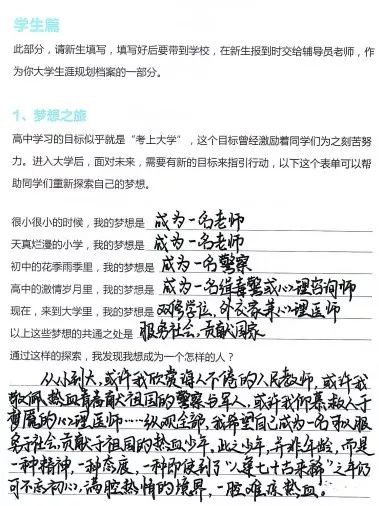 学生篇
此部分，请新生填写，填写好后要带到学校，在新生报到时交给辅导员老师，作
为你大学生涯规划档案的一部分。
1、梦想之旅
高中学习的目标似乎就是“考上大学”，这个目标曾经激励着同学们为之刻苦努
力。进入大学后，面对未来，需要有新的目标来指引行动，以下这个表单可以帮
助同学们重新探索自己的梦想。
很小很小的时候，我的梦想是 成为一名老师
天真烂漫的小学，我的梦想是 成为一名老师
初中的花季雨季里，我的梦想是 成为一名警察
高中的激情岁月里，我的梦想是 成为一名缉毒警或心理咨询师
现在，来到大学里，我的梦想是 双修学位，外交家兼心理医师
以上这些梦想的共通之处是 服务社会，贡献国家
通过这样的探索，我发现我想成为一个怎样的人？
从小到大，或许我欣赏诲人不倦的人民教师，或许我
敬佩热血青春献祖国的警察与军人，或许我仰慕救人于
梦魇的心理医师……纵观全部，我希望自己成为一名积极服
务于社会，贡献于祖国的热血少年，此之少年，并非年龄，而是
一种精神，一种态度，一种即使到了“人生七十古来稀”之年仍
可不忘初心，满腔热情的境界，一腔难凉热血。